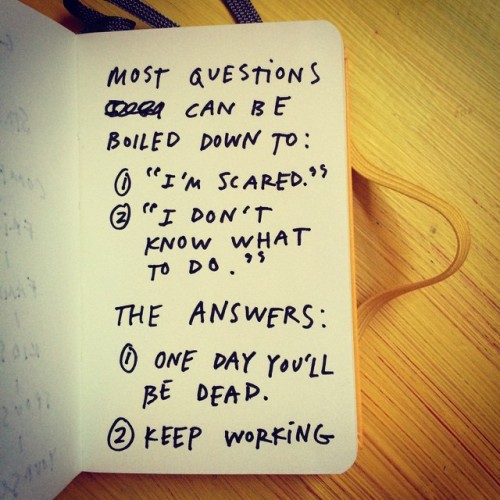 MOST QUESTIONS
CAN BE
BOILED DOWN TO:
① "I'M SCARED."
② "I DON'T
KNOW WHAT
TO DO."
THE ANSWERS:
① ONE DAY YOU'LL
BE DEAD.
② KEEP WORKING